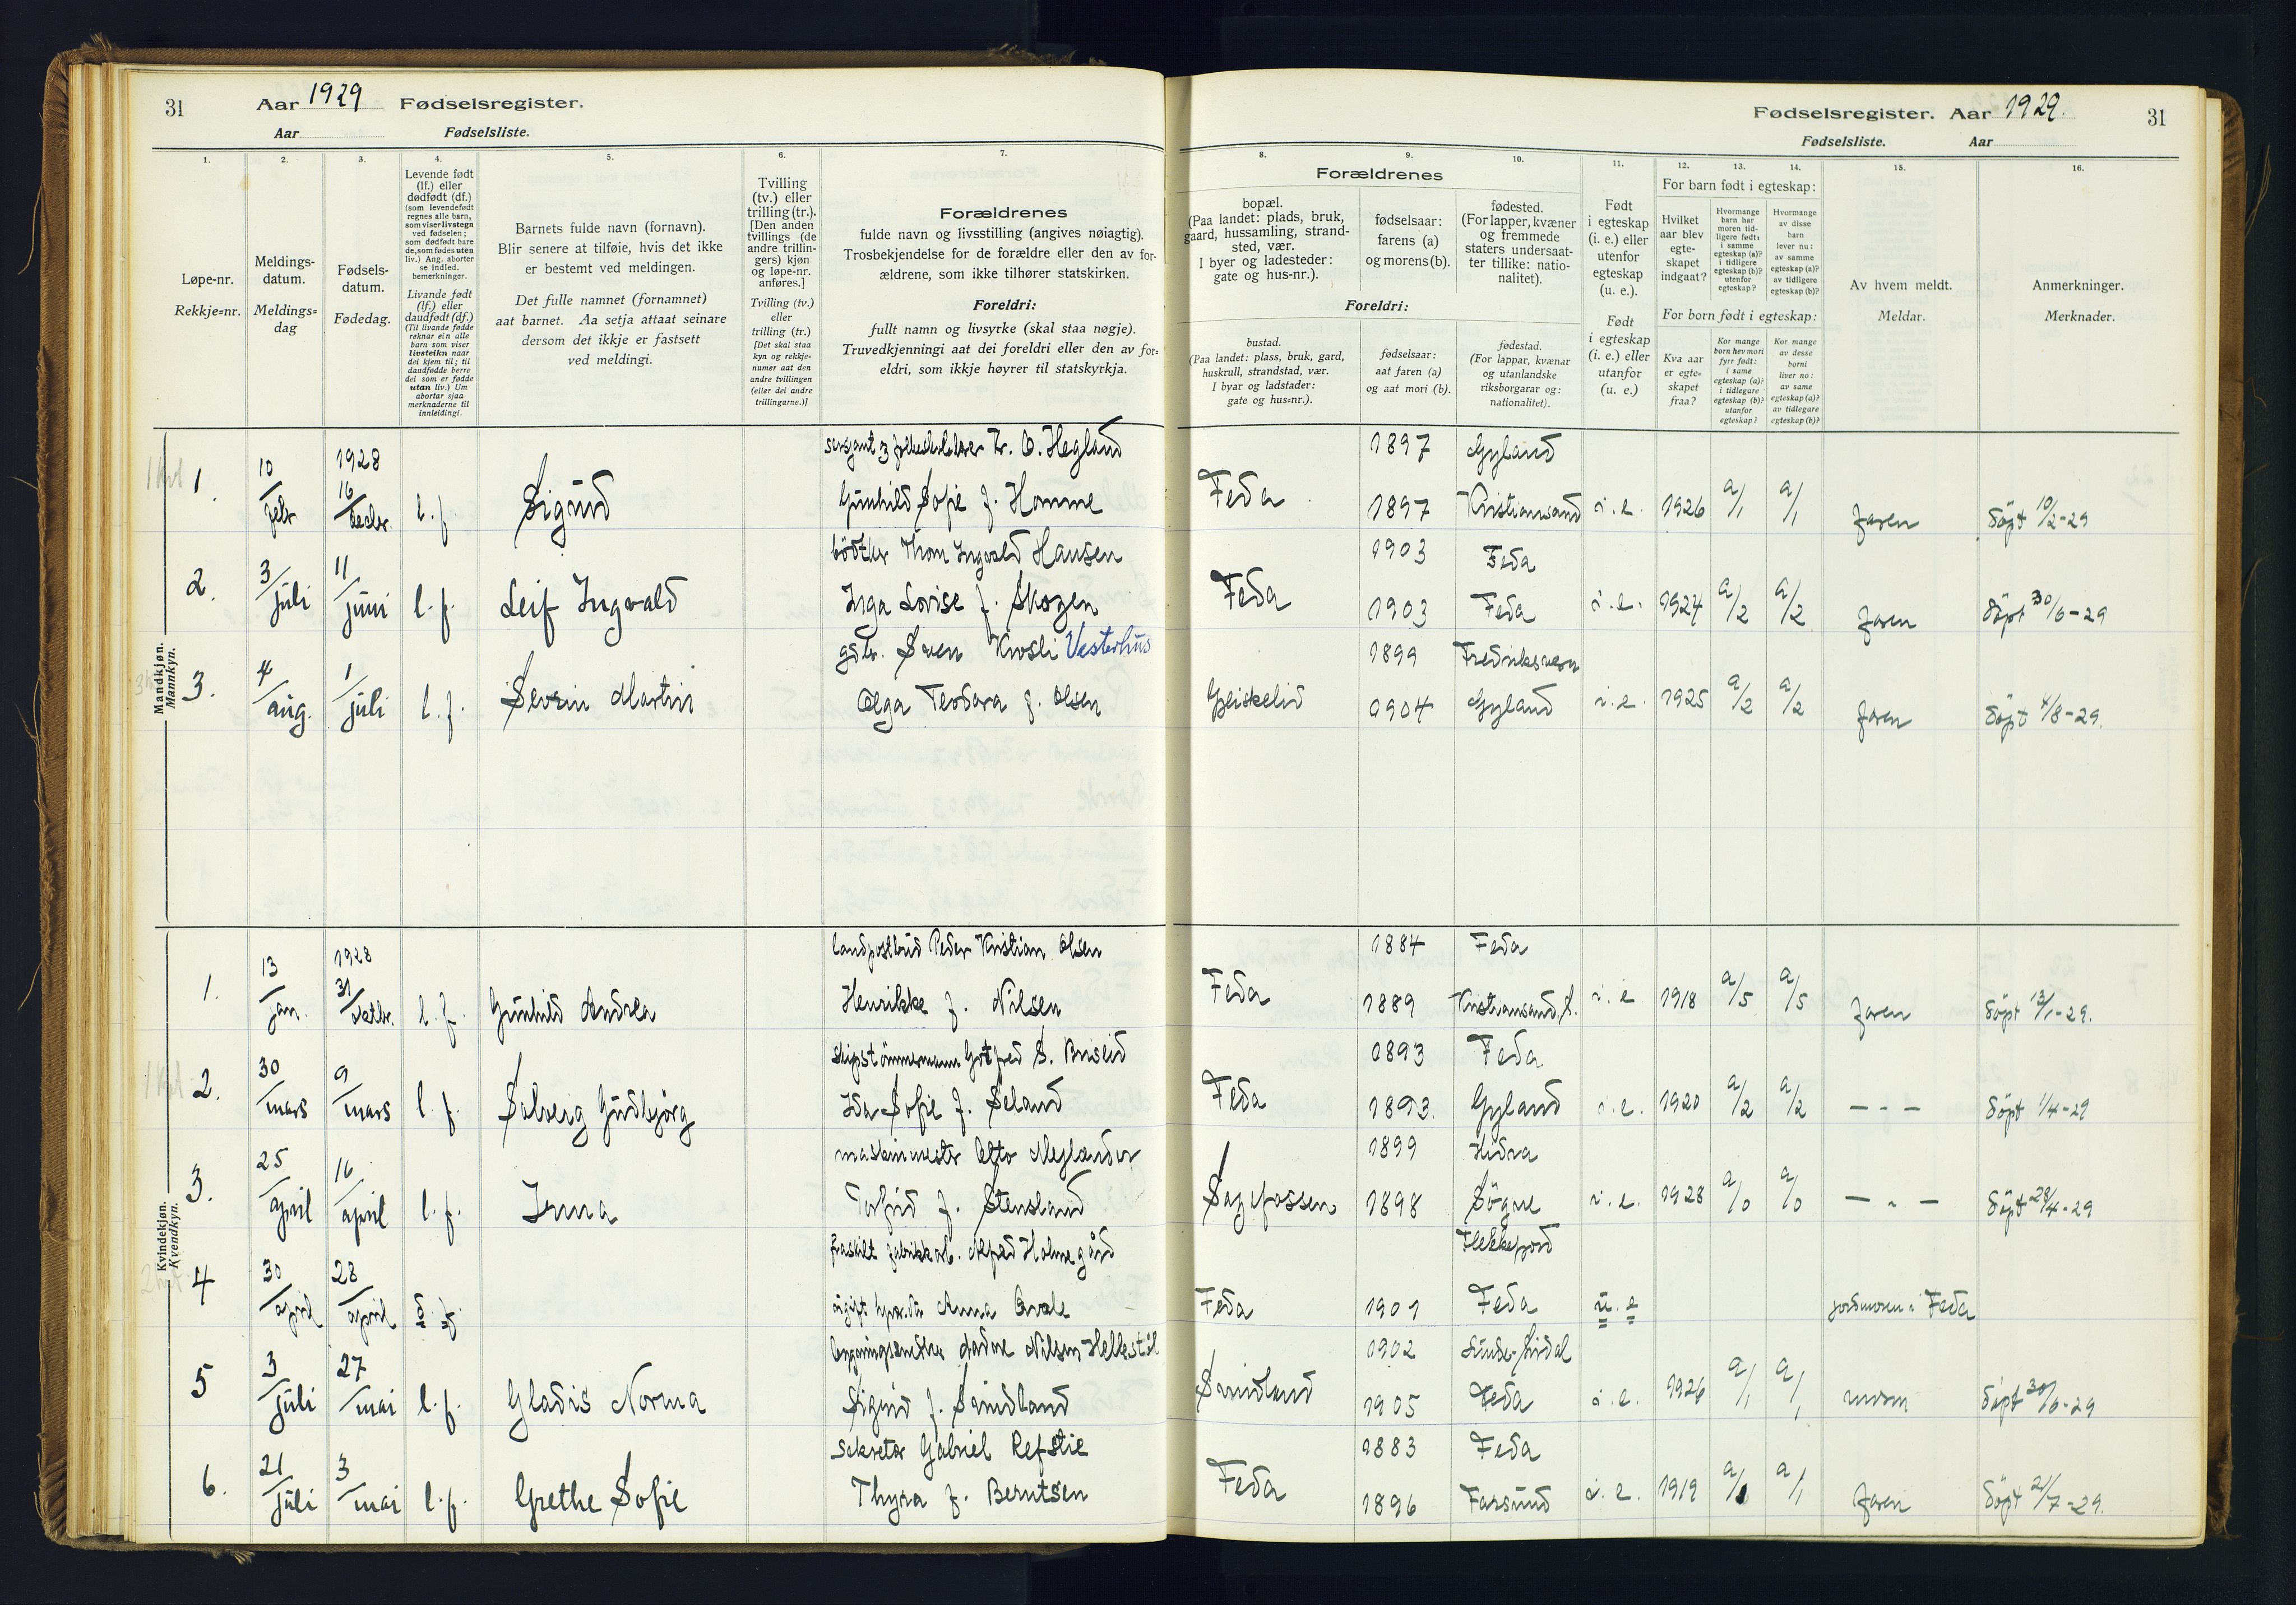 31 Aar 1929 Fødselsregister.
Aar Fødselsliste.
1. 2. 3. 4. 5. 6. 7.
Løpe-nr.
Rekkje=nr.
Meldings-
datum.
Meldings=
dag
Fødsels-
datum.
Fødedag.
Levende født
(lf.) eller
dødfødt (df.)
(som levendefødt
regnes alle barn,
som viser livstegn
ved fødselen;
som dødfødt bare
de, som fødes uten
liv.) Ang. aborter
se indled.
bemerkninger.
Livande født
(lf.) eller
daudfødt (df.)
(Til livande fødde
reknar ein alle
barn som viser
livsteikn naar
dei kjem til; til
daudfødde berre
dei som er fødde
utan liv.) Um
abortar sjaa
merknaderne til
innleidingi.
Barnets fulde navn (fornavn).
Blir senere at tilføie, hvis det ikke
er bestemt ved meldingen.
Det fulle namnet (fornamnet)
aat barnet. Aa setja attaat seinare
dersom det ikkje er fastsett
ved meldingi.
Tvilling
(tv.) eller
trilling (tr.).
[Den anden
tvillings (de
andre trillin-
gers) kjøn
og løpe-nr.
anføres.]
Tvilling (tv.)
eller
trilling (tr.)
[Det skal staa
kyn og rekkje-
numer aat den
andre tvillingen
(eller dei andre
trillingarne.)]
Forældrenes
fulde navn og livsstilling (angives nøiagtig).
Trosbekjendelse for de forældre eller den av for-
ældrene, som ikke tilhører statskirken.
Foreldri:
fullt namn og livsyrke (skal staa nøgje).
Truvedkjenningi aat dei foreldri eller den av for=
eldri, som ikkje høyrer til statskyrkja.
Mandkjøn.
Mannkyn.
1. 10/febr 1928 16/decbr. l. f. Sigurd
O. Hegland
Gunhild Sofie f. Homme
2. 3/juli 11/juni l. f. Leif Ingvald
bödtker Thom Ingvald Hansen
Inga Lovise f. Skogen
3. 4/aug. 1/juli l. f. Severin Martin
gdbr. Søren Krosli Vesterhus
Olga Teodora f. Olsen
Kvindekjøn.
Kvendkyn.
1. 13/jan. 1928 31/oktbr. l. f. Gunhild Andrea
landpostbud Peder Kristian Olsen
Henrikke f. Nilsen
2. 30/mars 9/mars l. f. Solveig Gudbjørg
skipstömmermann Gotfred S. Brislid
Ida Sofie f. Seland
3. 25/april 16/april l. f. Irma
maskinmester Otto Meglander
Torfrid f. Stensland
4 30/april 28/april d. f.
fraskilt fabrikkarb. Alfred Holmegård
ugift Anna
5 3/juli 27/mai l. f. Gladis Norma
Nilsen Hellestöl
Sigrid f. Smidland
6. 21/juli 3/mai l. f. Grethe Sofie
sekretær Gabriel Refstie
Thyra f. Berntsen
Fødselsregister. Aar 1929. 31
Fødselsliste. Aar
8. 9. 10. 11. 12. 13. 14. 15. 16.
Forældrenes
bopæl.
(Paa landet: plads, bruk,
gaard, hussamling, strand-
sted, vær.
I byer og ladesteder:
gate og hus-nr.).
fødselsaar:
farens (a)
og morens (b).
fødested.
(For lapper, kvæner
og fremmede
staters undersaat-
ter tillike: natio-
nalitet).
Foreldri:
bustad.
(Paa landet: plass, bruk, gard,
huskrull, strandstad, vær.
I byar og ladstader:
gate og hus=nr.).
fødselsaar:
aat faren (a)
og aat mori (b).
fødestad.
(For lappar, kvænar
og utanlandske
riksborgarar og:
nationalitet).
Født
i egteskap
(i. e.) eller
utenfor
egteskap
(u. e.).
Født
i egteskap
(i. e.) eller
utanfor
(u. e.)
For barn født i egteskap:
Hvilket
aar blev
egte-
skapet
indgaat?
Hvormange
barn har
moren tid-
ligere født:
i samme
egteskap (a)?
i tidligere
egteskap (b)?
utenfor
egteskap?
Hvormange
av disse
barn
lever nu:
av samme
egteskap (a)?
av tidligere
egteskap (b)?
For born født i egteskap:
Kva aar
er egte-
skapet
fraa?
Kor mange
born hev mori
fyrr født:
i same
egteskap (a)?
i tidlegare
egteskap (b)?
utanfor
egteskap?
Kor mange
av desse
borni
liver no:
av same
egteskap (a)?
av tidlegare
egteskap (b)?
Av hvem meldt.
Meldar.
Anmerkninger.
Merknader.
1897 Gyland
Feda 1897 Kristiansand i. e. 1926 a/1 a/1 faren döpt 10/2-29
1903 Feda
Feda 1903 Feda i. e. 1924 a/2 a/2 faren döpt 30/6-29
1899 Fredriksvern
Geiskelid 1904 Gyland i. e. 1925 a/2 a/2 faren döpt 4/8-29.
1884 Feda
Feda 1889 Kristiansand S. i. e 1918 a/5 a/5 faren döpt 13/1-29.
1893 Feda
Feda 1893. Gyland i. e. 1920 a/2 a/2 — - — döpt 1/4-29
1899 Hidra
Sagefossen 1898 Søgne i. e. 1928 a/0 a/0 — „ — döpt 28/4-29
Flekkefjord
Feda 1901 Feda u. e jordmoren i Feda
1902 Sirdal
Smidland 1905 Feda i. e. 1926 a/1 a/1 moren döpt 30/6-29
1883 Feda
Feda 1896 Farsund i. e. 1919 a/1 a/1 faren döpt 21/7-29.